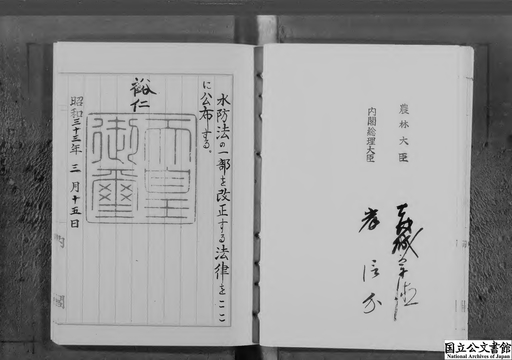 農林大臣
内閣総理大臣
岸信介
水防法の一部を改正する法律をここ
に公布する。
裕仁
天皇
御璽
昭和三十三年三月十五日
国立公文書館
National Archives of Japan